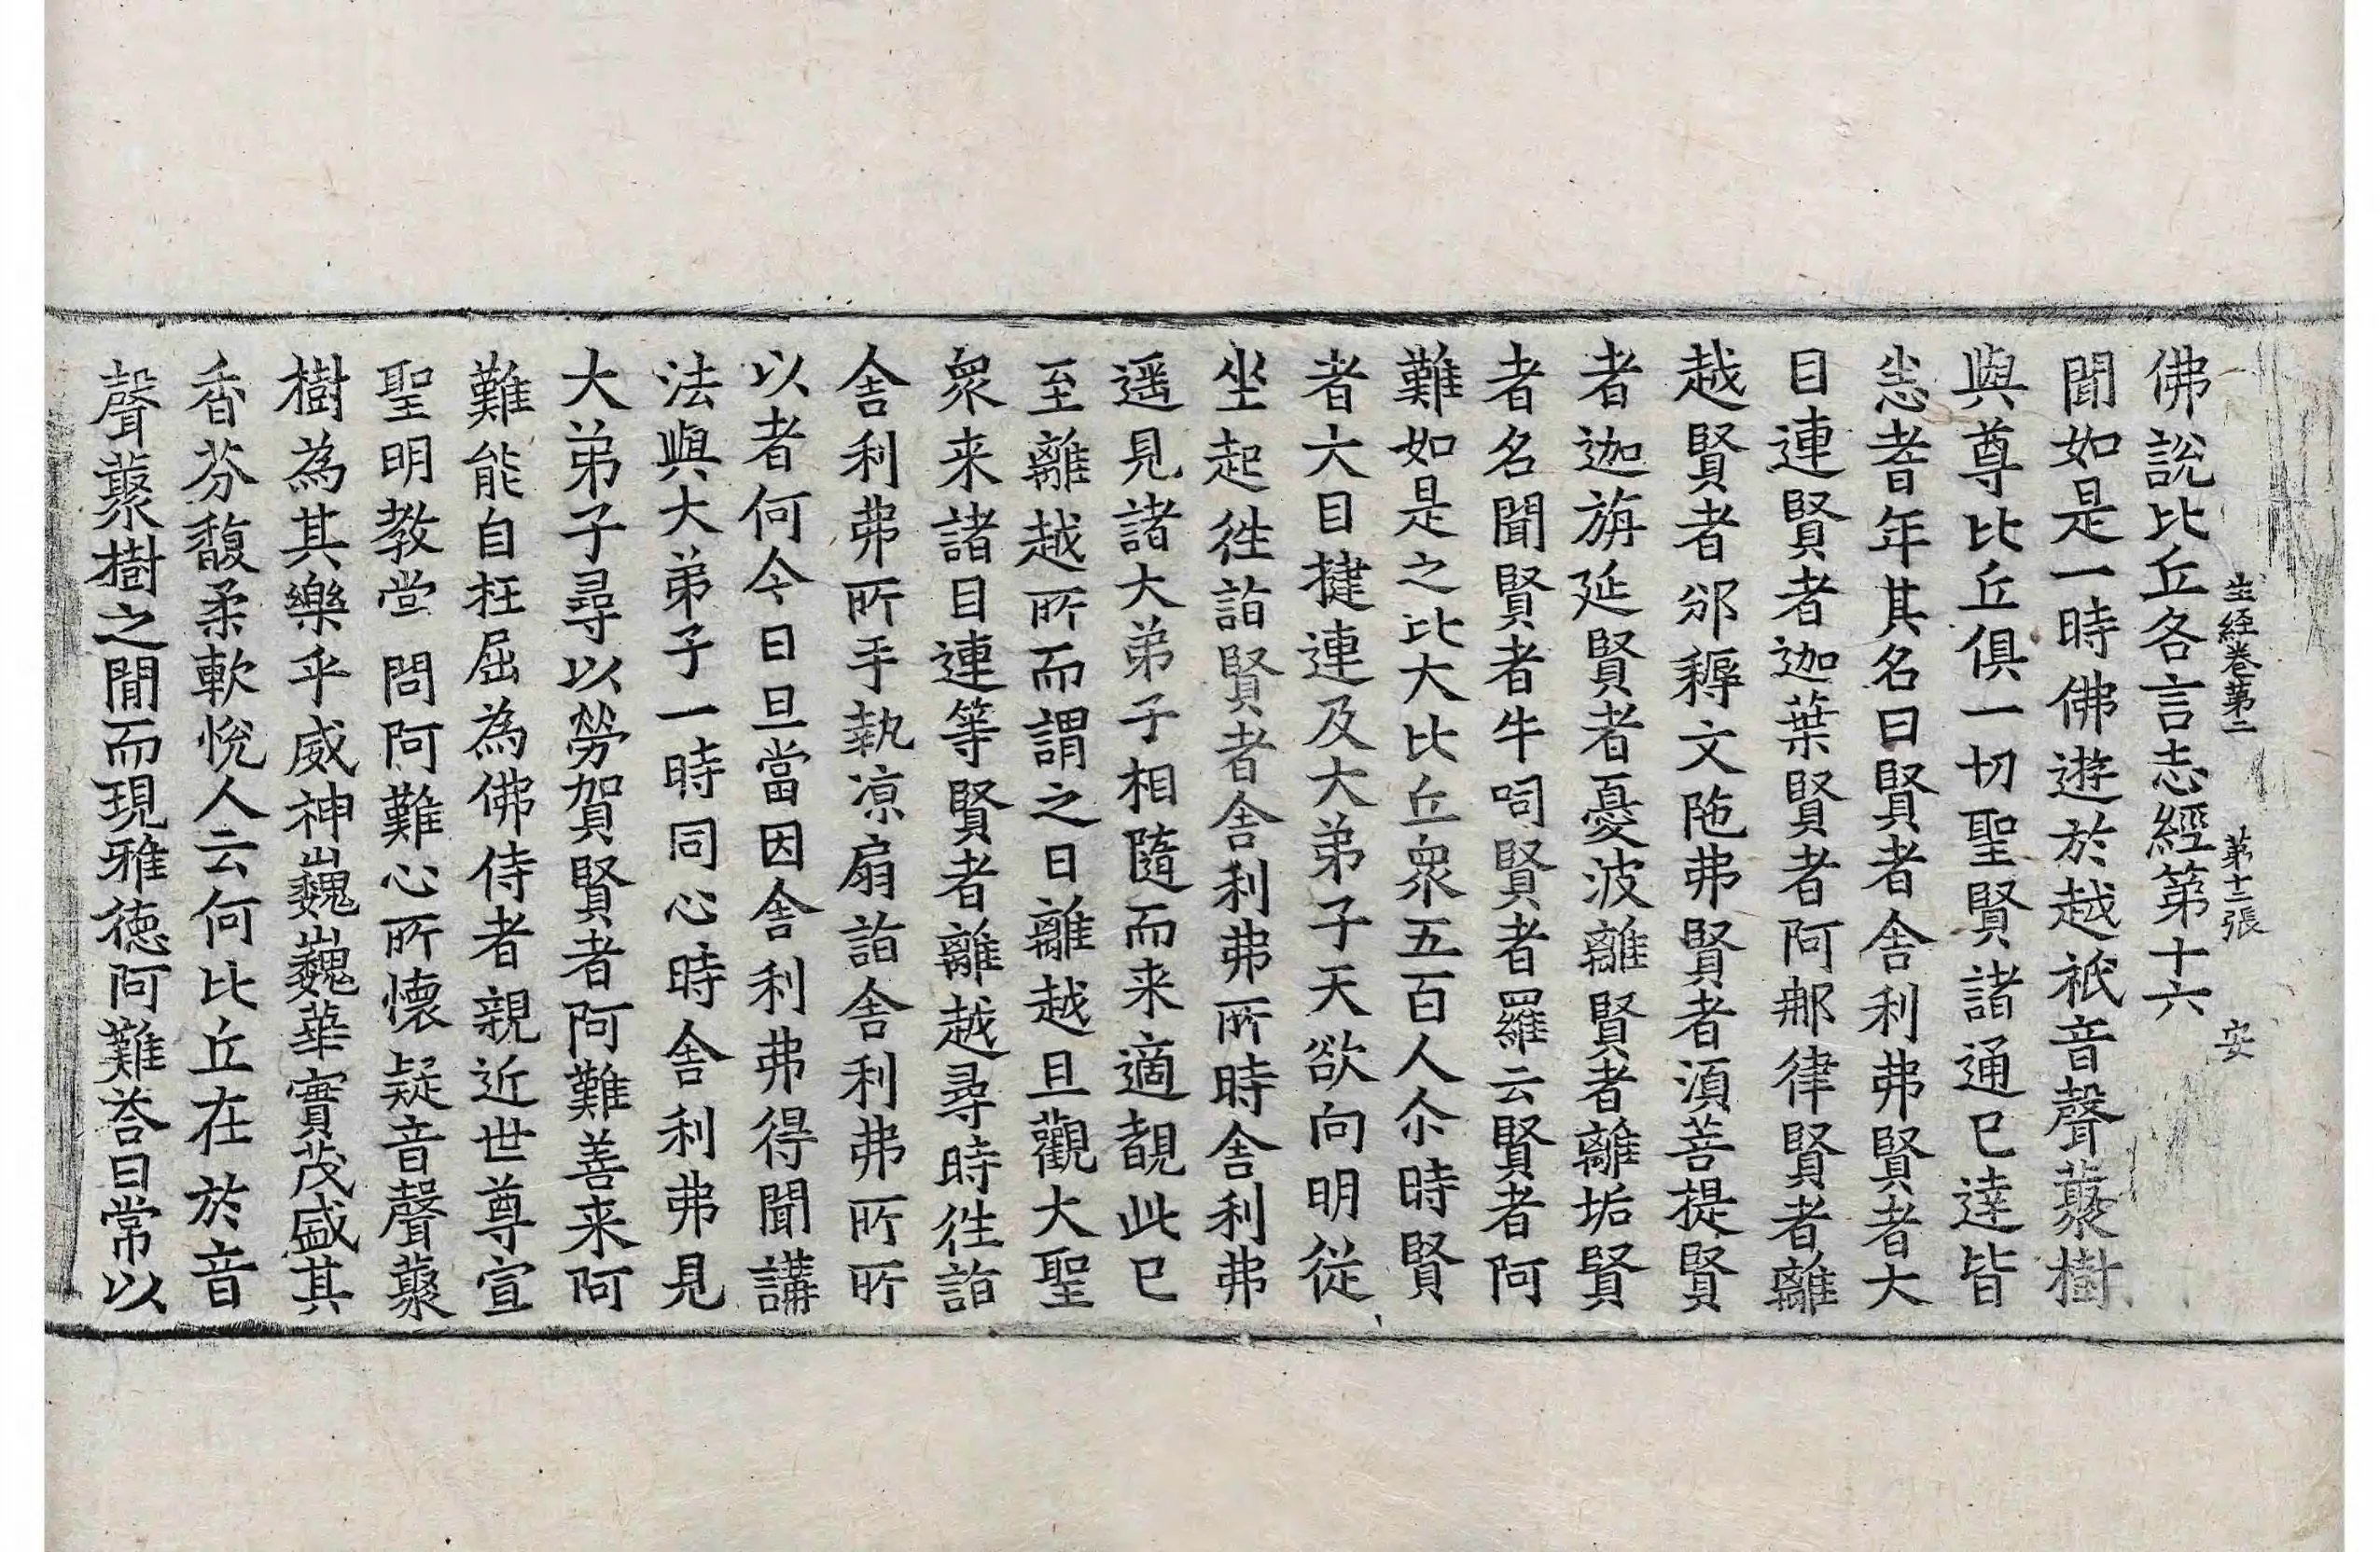 生経卷第二　第十二張　安
佛說比丘各言志經第十六
聞如是一時佛遊於越祇音聲藂樹
與尊比丘俱一切聖賢諸通已達皆
悉耆年其名曰賢者舍利弗賢者大
目連賢者迦葉賢者阿那律賢者離
越賢者邠耨文陁弗賢者湏菩提賢
者迦旃延賢者憂波離賢者離垢賢
者名聞賢者牛呞賢者羅云賢者阿
難如是之比大比丘衆五百人尒時賢
者大目揵連及大弟子天欲向明從
坐起往詣賢者舍利弗所時舍利弗
遥見諸大弟子相隨而来適覩此已
至離越所而謂之曰離越且觀大聖
衆来諸目連等賢者離越尋時往詣
舍利弗所手執凉扇詣舍利弗所所
以者何今日旦當因舍利弗得聞講
法與大弟子一時同心時舍利弗見
大弟子尋以勞賀賢者阿難善来阿
難能自枉屈為佛侍者親近世尊宣
聖明教堂問阿難心所懷疑音聲藂
樹為其樂乎威神巍巍華實茂盛其
香芬馥柔軟悅人云何比丘在於音
聲藂樹之閒而現雅徳阿難荅曰常以